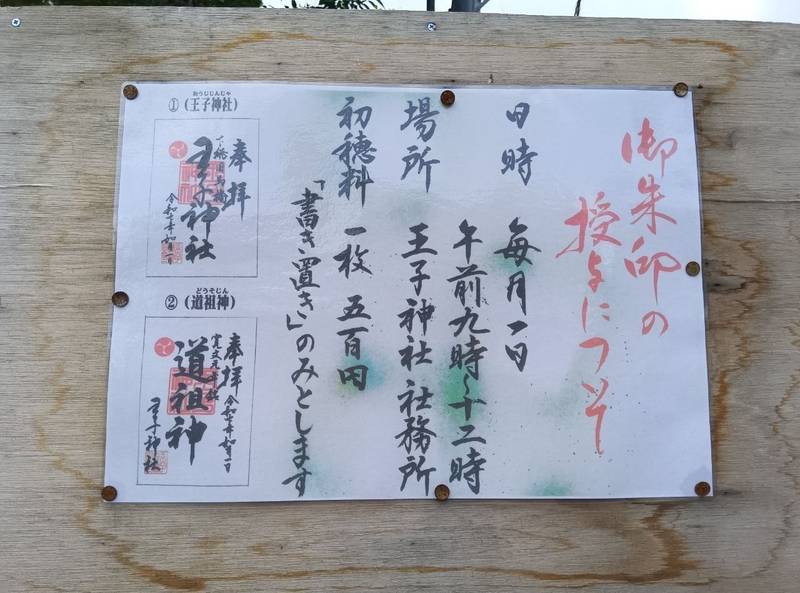 御朱印の
授与について
日時 毎月一日
午前九時~十二時
場所 王子神社 社務所
初穂料 一枚 五百円
「書き置き」のみとします
おうじじんじゃ
①(王子神社)
奉拝
王子神社
どうそじん
②(道祖神)
奉拝
道祖神
王子神社